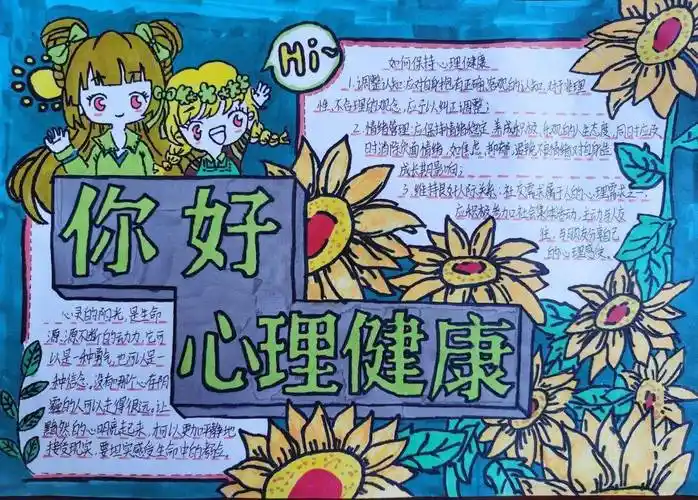 Hi~
你好
心理健康
如何保持心理健康
1.调整认知:应对自身抱有正确、客观的认知,对于非理
性、不合理的观念,应予以纠正调整;
2.情绪管理:应保持情绪稳定,养成积极、乐观的人生态度,同时应及
时消除负面情绪,如焦虑、抑郁,避免不良情绪对自身造
成长期影响;
3.维持良好人际关系:社交需求属于人的心理需求之一,
应积极参加社会集体活动,主动与人交
往,与朋友分享自己
的心理感受。
心灵的阳光,是生命
源源不断的动力,它可
以是一种勇气,也可以是一
种信念,没有哪个心在阴
霾的人可以走得很远。让
黯然的心明亮起来,才可以更加平静地
接受现实,更坦实感受生命中的考验。